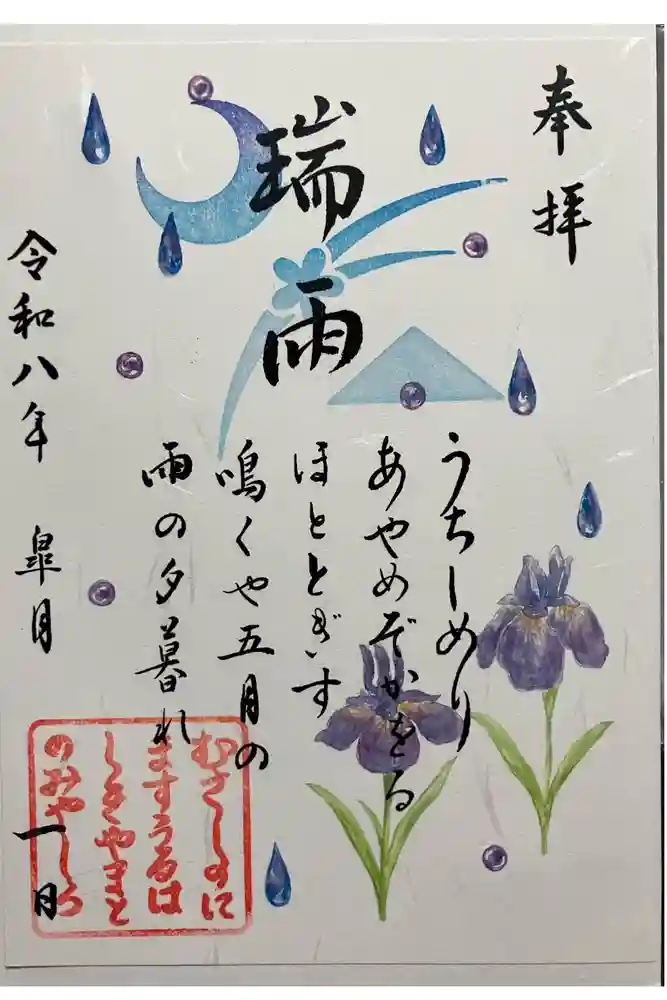 奉拝
瑞雨
うちしめり
あやめぞかをる
ほととぎす
鳴くや五月の
雨の夕暮れ
令和八年 皐月 一日
むさしのに
ますうるは
しきやまと
のみやしろ